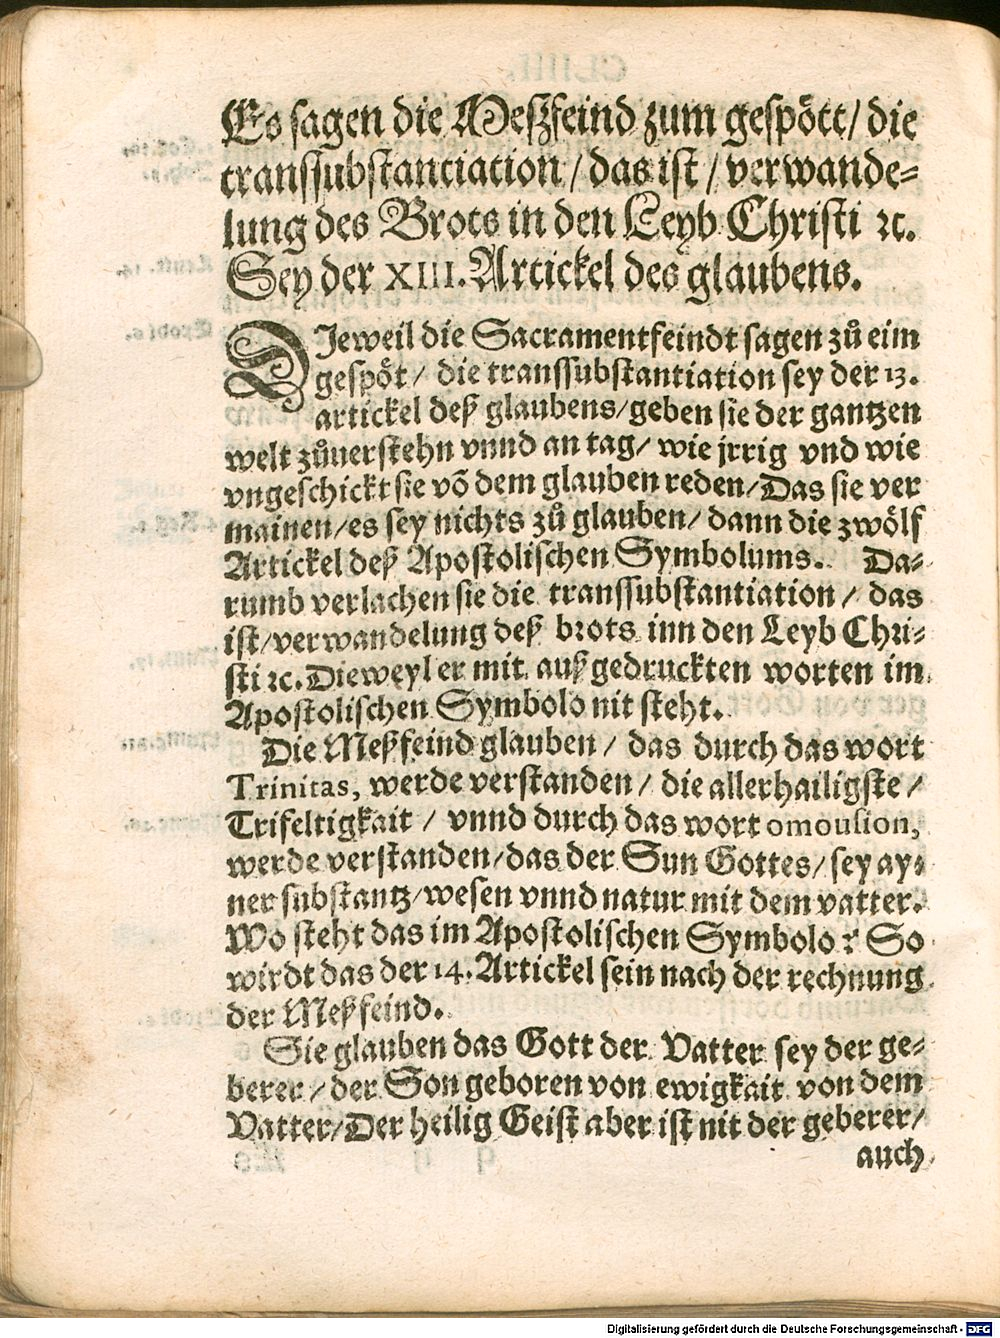 Es sagen die Meszfeind zum gespött/ die
transsubstantiation / das ist / verwande=
lung des Brots in den Leyb Christi ꝛc.
Sey der XIII. Artickel des glaubens.
DJeweil die Sacramentfeindt sagen zů eim
gespöt / die transsubstantiation sey der 13.
artickel deß glaubens/geben sie der gantzen
welt zůuerstehn vnnd an tag/ wie jrrig vnd wie
vngeschickt sie võ dem glauben reden/Das sie ver
mainen/es sey nichts zů glauben/ dann die zwölf
Artickel deß Apostolischen Symbolums. Da=
rumb verlachen sie die transsubstantiation / das
ist/verwandelung deß brots inn den Leyb Chri=
sti ꝛc. Dieweyl er mit außgedruckten worten im
Apostolischen Symbolo nit steht.
Die Meßfeind glauben / das durch das wort
Trinitas, werde verstanden / die allerhailigste /
Trifeltigkait / vnnd durch das wort omousion,
werde verstanden/das der Sun Gottes/ sey ay=
ner substantz/wesen vnnd natur mit dem vatter.
Wo steht das im Apostolischen Symbolo? So
wirdt das der 14. Artickel sein nach der rechnung
der Meßfeind.
Sie glauben das Gott der Vatter sey der ge=
berer / der Son geboren von ewigkait von dem
Vatter/Der heilig Geist aber ist nit der geberer/
auch
Digitalisierung gefördert durch die Deutsche Forschungsgemeinschaft - DFG